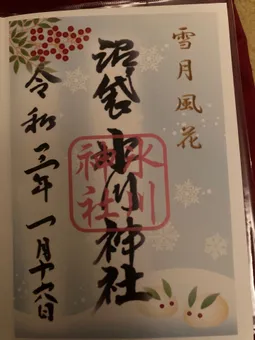 雪月風花
沼袋氷川神社
氷川神社
令和三年一月十六日